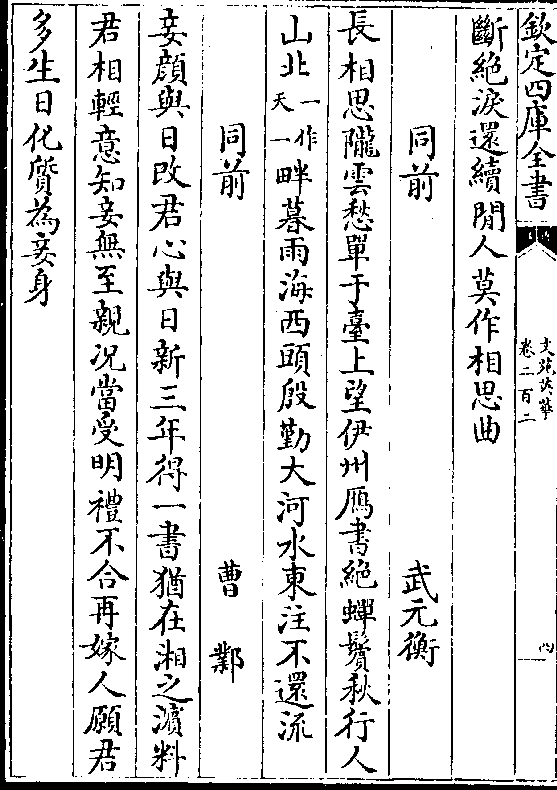 欽定四庫全書
文苑英華
卷二百二
斷絶淚還續閒人莫作相思曲
同前 武元衡
長相思隴雲愁單于臺上望伊州鴈書絶蟬鬢秋行人
山北一作天一畔暮雨海西頭殷勤大河水東注不還流
同前 曹鄴
妾顔與日改君心與日新三年得一書猶在湘之濵料
君相輕意知妾無至親况當受明禮不合再嫁人願君
多生日化質為妾身